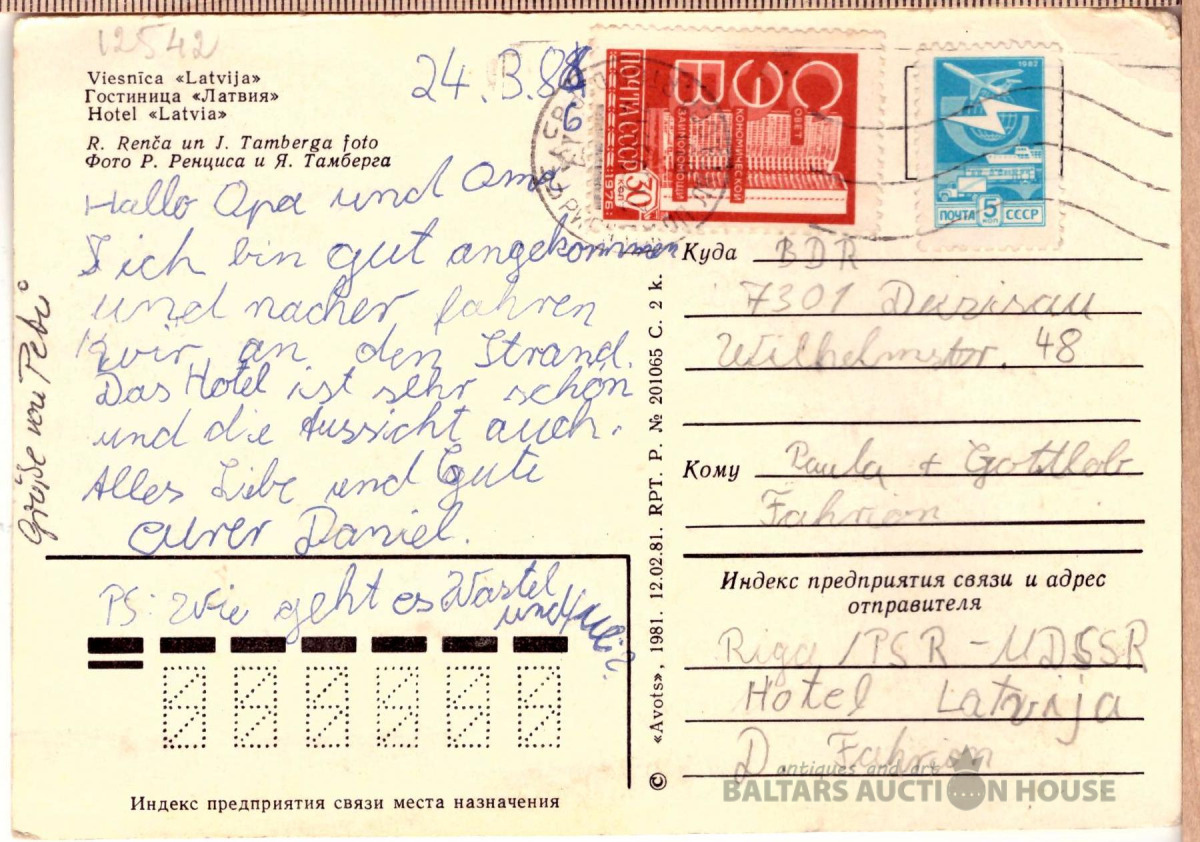 12542
Viesnīca «Latvija»
Гостиница «Латвия»
Hotel «Latvia»
R. Renča un J. Tamberga foto
Фото Р. Ренциса и Я. Тамберга
24. 3. 86
6
Hallo Opa und Oma
ich bin gut angekommen
und nacher fahren
wir an den Strand.
Das Hotel ist sehr schön
und die Aussicht auch.
Alles Libe und Gute
eurer Daniel.
PS: Wie geht es Wastel
und
Grüße von Petri
Индекс предприятия связи места назначения
© «Avots», 1981. 12.02.81. RPT. P. № 201065 C. 2 k.
ПОЧТА СССР · 1976
30 коп
СЭВ
СОВЕТ
ЭКОНОМИЧЕСКОЙ
ВЗАИМОПОМОЩИ
1982
ПОЧТА 5 коп СССР
Куда BDR
7301 Deizisau
Wilhelmstr. 48
Кому Paula + Gottlob
Fahrion
Индекс предприятия связи и адрес
отправителя
Riga /
Hotel Latvija
D. Fahrion
antiques and art
BALTARS AUCTION HOUSE